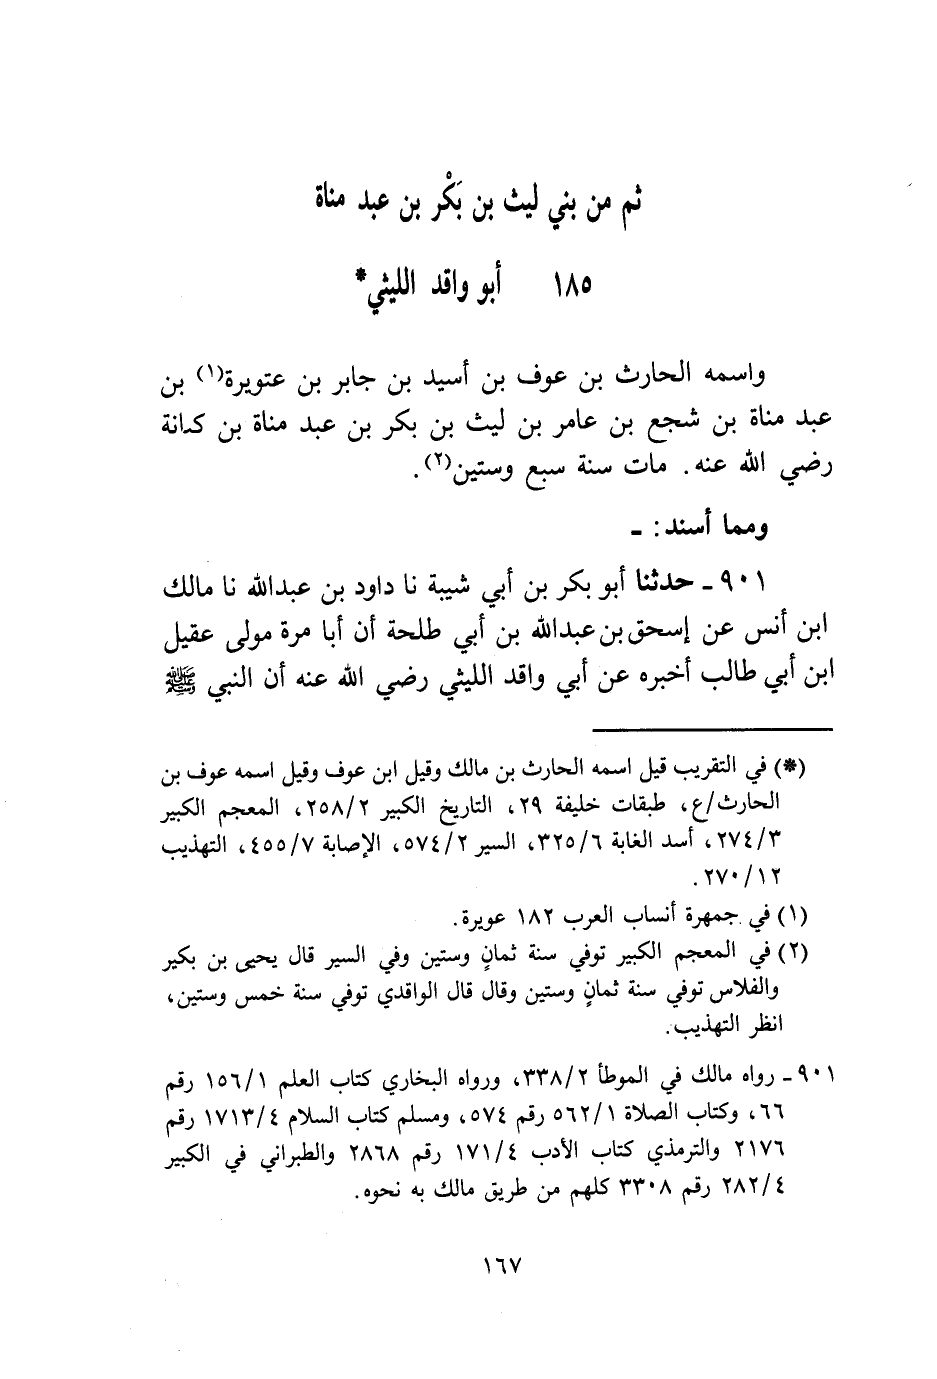 ثم من بني ليث بن بَكْر بن عبد مناة
١٨٥ أبو واقد الليثي*
واسمه الحارث بن عوف بن أسيد بن جابر بن عتويرة(١) بن
عبد مناة بن شجع بن عامر بن ليث بن بكر بن عبد مناة بن كنانة
رضي الله عنه. مات سنة سبع وستين(٢).
ومما أسند: ـ
٩٠١ ـ حدثنا أبو بكر بن أبي شيبة نا داود بن عبدالله نا مالك
ابن أنس عن إسحق بن عبدالله بن أبي طلحة أن أبا مرة مولى عقيل
ابن أبي طالب أخبره عن أبي واقد الليثي رضي الله عنه أن النبي ﷺ
(*) في التقريب قيل اسمه الحارث بن مالك وقيل ابن عوف وقيل اسمه عوف بن
الحارث/ع، طبقات خليفة ٢٩، التاريخ الكبير ٢٥٨/٢، المعجم الكبير
٢٧٤/٣، أسد الغابة ٣٢٥/٦، السير ٥٧٤/٢، الإصابة ٤٥٥/٧، التهذيب
٢٧٠/١٢.
(١) في جمهرة أنساب العرب ١٨٢ عويرة.
(٢) في المعجم الكبير توفي سنة ثمانٍ وستين وفي السير قال يحيى بن بكير
والفلاس توفي سنة ثمانٍ وستين وقال قال الواقدي توفي سنة خمس وستين،
انظر التهذيب.
٩٠١ ـ رواه مالك في الموطأ ٣٣٨/٢، ورواه البخاري كتاب العلم ١٥٦/١ رقم
٦٦، وكتاب الصلاة ٥٦٢/١ رقم ٥٧٤، ومسلم كتاب السلام ١٧١٣/٤ رقم
٢١٧٦ والترمذي كتاب الأدب ١٧١/٤ رقم ٢٨٦٨ والطبراني في الكبير
٢٨٢/٤ رقم ٣٣٠٨ كلهم من طريق مالك به نحوه.
١٦٧